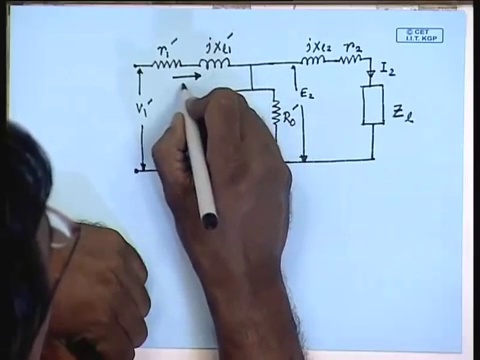 © CET
I.I.T. KGP
r₁′ jxₗ₁′ jxₗ₂ r₂
I₂
V₁′ R₀′ E₂ Zₗ